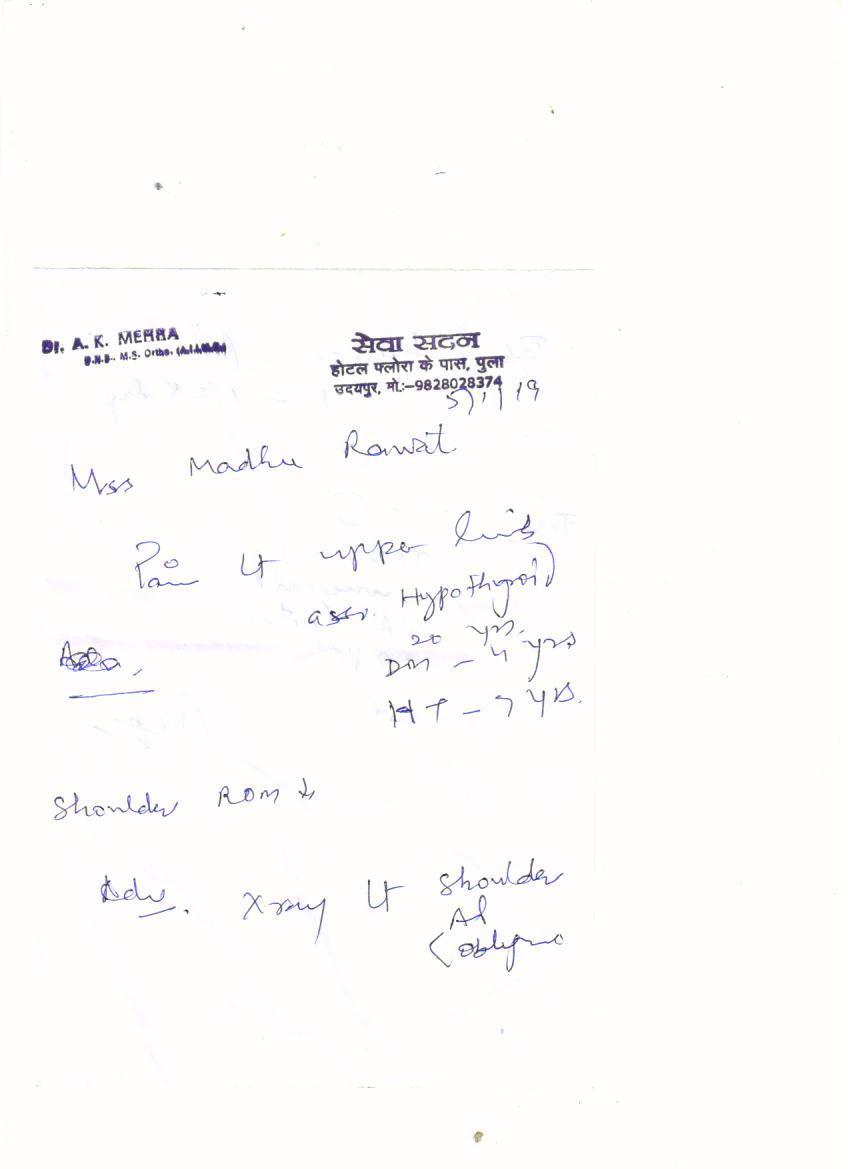 Dr. A. K. MEHRA
D.N.B. M.S. Ortho. (A.I.I.M.S.)
सेवा सदन
होटल फ्लोरा के पास, पुला
उदयपुर, मो.:–9828028374
5/1/19
Mss Madhu Rawat
Pain Lt upper limb
asso. Hypothyroid
20 yrs.
DM - 4 yrs
HT - 7 yrs.
Shoulder ROM ↓
Adv. Xray Lt Shoulder
AP
oblique